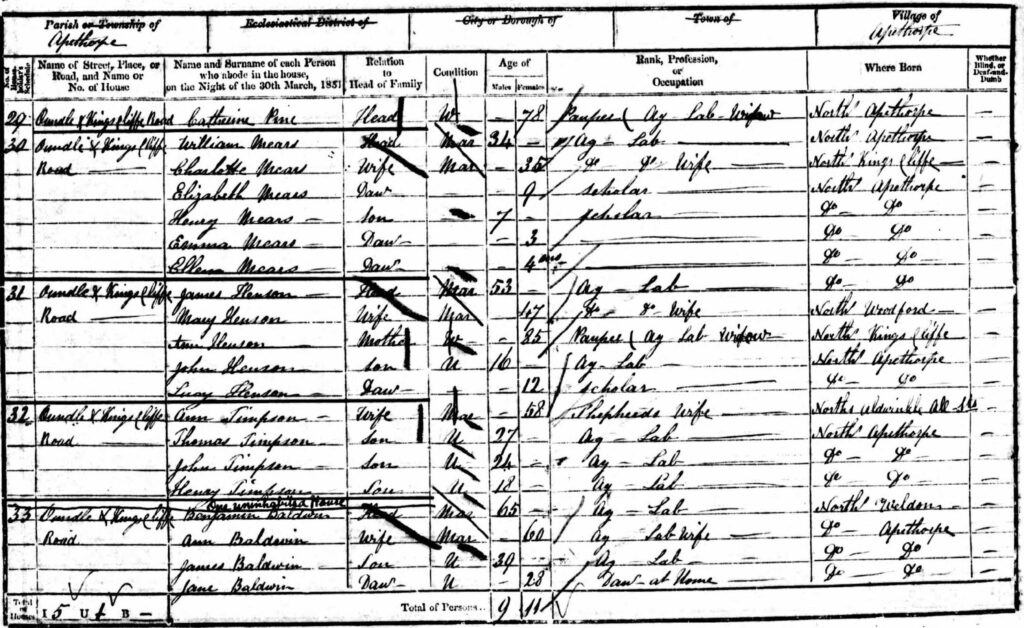 Parish or Township of Apethorpe
Ecclesiastical District of
City or Borough of
Town of
Village of Apethorpe
No. of Householder's Schedule
Name of Street, Place, or Road, and Name or No. of House
Name and Surname of each Person who abode in the house, on the Night of the 30th March, 1851
Relation to Head of Family
Condition
Age of
Males Females
Rank, Profession, or Occupation
Where Born
Whether Blind, or Deaf-and-Dumb
29 Oundle & Kings Cliffe Road Catherine Pine Head W - 78 Pauper (Ag Lab Widow North Apethorpe -
30 Oundle & Kings Cliffe William Mears Head Mar 34 - Ag - Lab North Apethorpe -
Road Charlotte Mears Wife Mar - 35 Do Do Wife North Kings Cliffe -
Elizabeth Mears Daw 9 scholar North Apethorpe -
Henry Mears Son 7 - scholar Do Do -
Emma Mears Daw - 3 Do Do -
Ellen Mears Daw - 4 Do Do -
31 Oundle & Kings Cliffe James Henson Head Mar 53 - Ag - Lab Do Do -
Road Mary Henson Wife Mar - 47 Do Do Wife North Woodford -
Ann Henson Mother W - Pauper (Ag Lab Widow North Kings Cliffe -
John Henson Son U 16 - Ag - Lab North Apethorpe -
Lucy Henson Daw - 12 scholar Do Do -
32 Oundle & Kings Cliffe Ann Timpson Wife Mar - 58 Shepherds Wife Norths Aldwinkle All Sts -
Road Thomas Timpson Son U 27 - Ag - Lab North Apethorpe -
John Timpson Son U 24 - Ag - Lab Do Do -
Henry Timpson Son U 18 - Ag Lab Do Do -
One uninhabited House
33 Oundle & Kings Cliffe Benjamin Baldwin Head Mar 65 - Ag - Lab North Weldon -
Road Ann Baldwin Wife Mar - 60 Ag Lab Wife Do Apethorpe -
James Baldwin Son U 39 - Ag Lab Do Do -
Jane Baldwin Daw U - 28 Daw at Home Do Do -
Total of Houses I 5 U 1 B -
Total of Persons.. 9 11